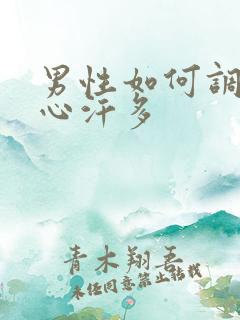 男性如何調
心汗多
青木翔吾
未經同意禁止轉載